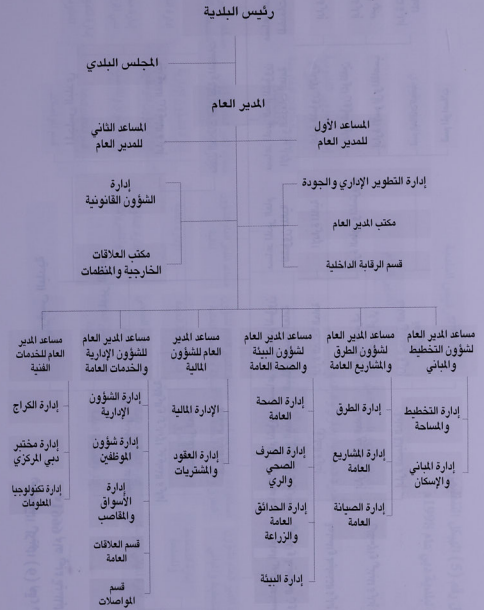 رئيس البلدية
المجلس البلدي
المدير العام
المساعد الأول
للمدير العام
المساعد الثاني
للمدير العام
إدارة التطوير الإداري والجودة
مكتب المدير العام
قسم الرقابة الداخلية
إدارة
الشؤون القانونية
مكتب العلاقات
الخارجية والمنظمات
مساعد المدير العام
لشؤون التخطيط
والمباني
إدارة التخطيط
والمساحة
إدارة المباني
والإسكان
مساعد المدير العام
لشؤون الطرق
والمشاريع العامة
إدارة الطرق
إدارة المشاريع
العامة
إدارة الصيانة
العامة
مساعد المدير العام
لشؤون البيئة
والصحة العامة
إدارة الصحة
العامة
إدارة الصرف
الصحي
والري
إدارة الحدائق
العامة
والزراعة
إدارة البيئة
مساعد المدير
العام للشؤون
المالية
الإدارة المالية
إدارة العقود
والمشتريات
مساعد المدير العام
للشؤون الإدارية
والخدمات العامة
إدارة الشؤون
الإدارية
إدارة شؤون
الموظفين
إدارة
الأسواق
والمقاصب
قسم العلاقات
العامة
قسم
المواصلات
مساعد المدير
العام للخدمات
الفنية
إدارة الكراج
إدارة مختبر
دبي المركزي
إدارة تكنولوجيا
المعلومات